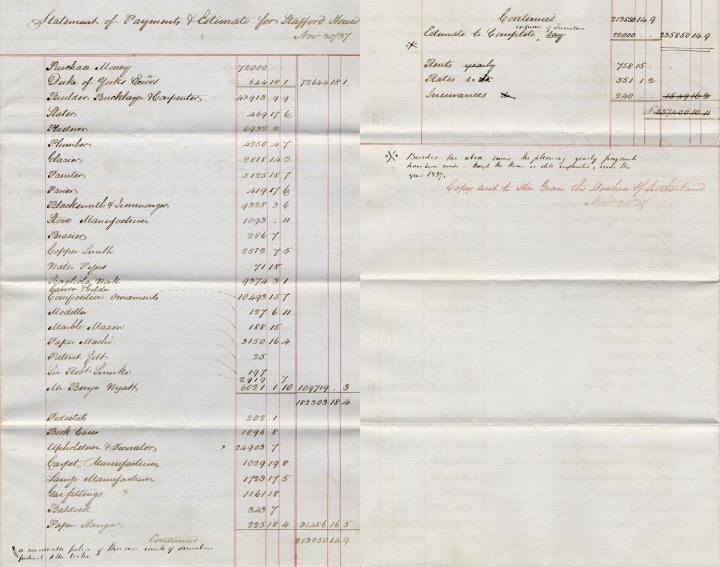 Statement of Payments & Estimate for Stafford House
Nov 30/37
Purchase Money 72000
Duke of York's Exőrs 644 18 1 72644 18 1
Builder Bricklayer & Carpenter 43913 9 9
Slater 469 17 6
Plasterer 6932 2
Plumber 4250 4 7
Glazier 2818 14 2
Painter 5125 18 7
Pavier 419 17 6
Blacksmith & Ironmonger 9328 3 6
Stove Manufacturer 1093 . 11
Brasier 286 7
Copper Smith 2572 7 5
Water Pipes 71 18
Scagliola Work 9374 3 1
Carver & Gilder
Composition Ornaments 10493 15 7
Modeller 127 6 11
Marble Mason 188 15
Paper Maché 3150 16 4
Patent felt 25
Sir Robt. Smirke 197
2919 . 7
Mr Benjn Wyatt 6021 1 10 109719 . 3
182303 18 4
Pedestals 202 1
Book Cases 1896 8
Upholsterer & Decorator 24903 7
Carpet Manufacturer 1029 19 8
Lamp Manufacturer 1723 17 5
Gas fittings 1161 18
Baldock 343 7
Paper Hanger 225 18 4 31486 16 5
Continued 213850 14 9
a considerable portion of this sum consists of decorations
Continued 213850 14 9
Estimate to Complete, say 22000 . . 235850 14 9
exclusive of Furniture
Rents yearly 758 15
Rates 551 1 2
Insurances 240 1549 16 2
£ 237400 10 11
Besides the above sums the following yearly payments
have been made - though the House is still unfinished, since the
year 1827,
Copy sent to Her Grace the Duchess of Sutherland
Nov 30/37